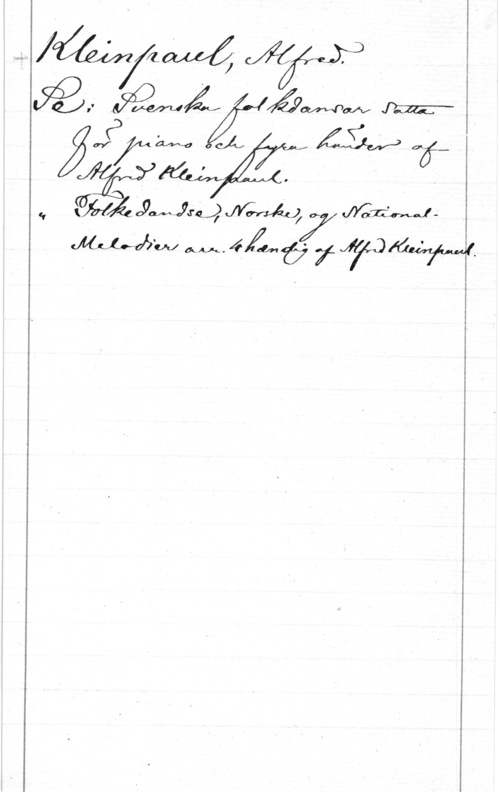 Kleinpaul, Alfred.
Se: Svenska folkdansar satta
för piano och fyra händer af
Alfred Kleinpaul.
" Folkedandse, Norske, og National-
Melodier arr. 4 hændig af Alfred Kleinpaul.